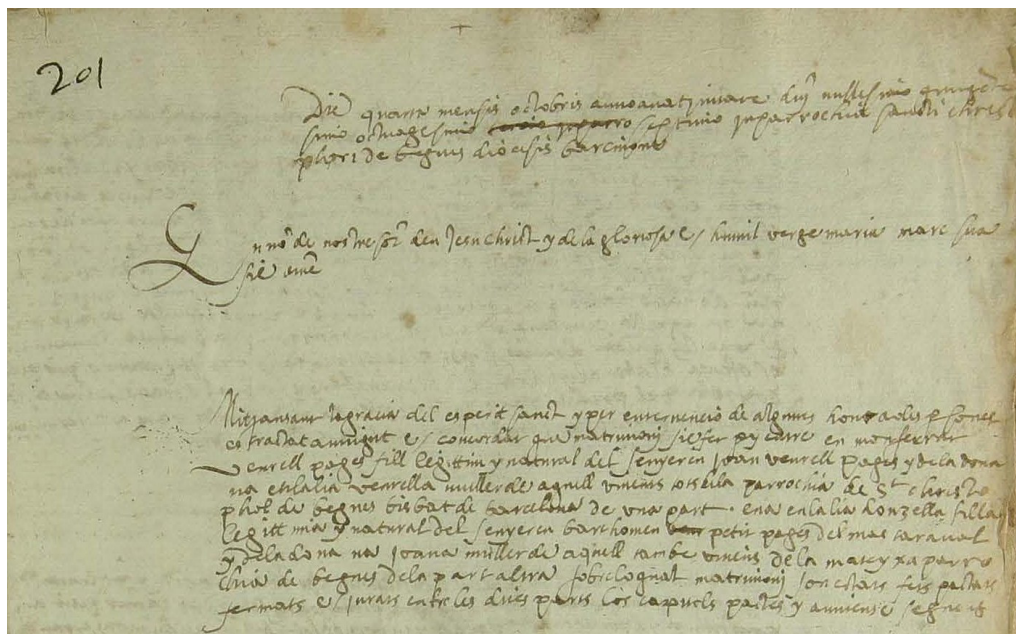 201
Die quarta mensis octobris anno a nat. mare dnj millesimo quinge
simo octuagesimo septimo in parrochia sancti christo
phori de begues diocesis barcinone
En no de nostre sor deu Jesu christ y de la gloriosa e humil verge maria mare sua
sie ame
Mitjansant la gracia del esperit sanct y per entreuencio de algunes honrades psones
es tractat auingut e concordat que matrimonj sie fet p y entre en monserrat
Venrell pages fill legittim y natural del senyeren joan venrell pages y de la dona
na eulalia venrella muller de aquell viuents en la parrochia de St christo
phol de begues bisbat de barcelona de vna part. e na eulalia donzella filla
legittima y natural del senyeren barthomeu petit pages del mas
y de la dona na joana muller de aquell tambe viuens de la mateyxa parro
chia de begues de la part altra sobre lo qual matrimonj son estats fets pactats
fermats e jurats entre les dues parts los capitols pactes y auinense seguents